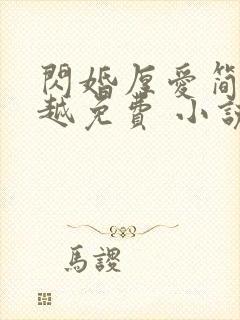 閃婚厚愛簡
越免費 小說
馬謖